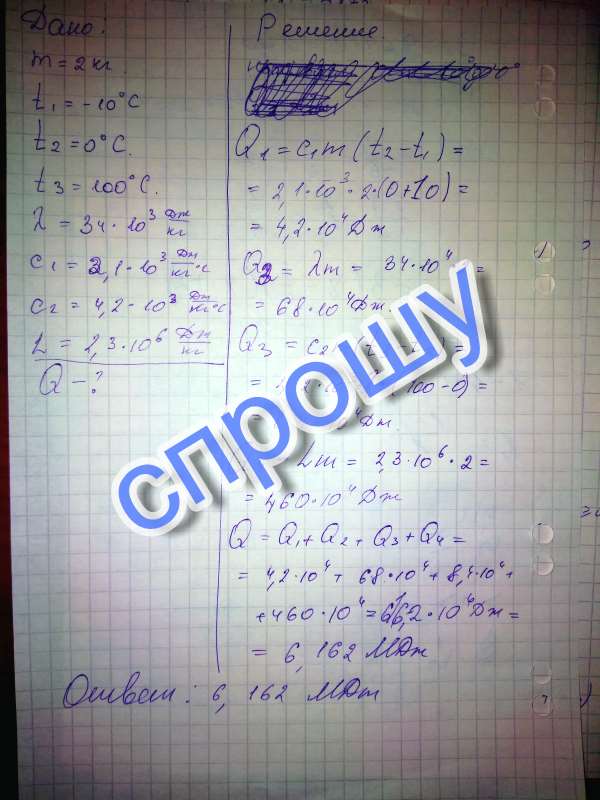 Дано:
m = 2 кг.
t₁ = -10°C
t₂ = 0°C.
t₃ = 100°C.
λ = 34·10³ Дж/кг
c₁ = 2,1·10³ Дж/кг·°C
c₂ = 4,2·10³ Дж/кг·°C
L = 2,3·10⁶ Дж/кг
Q - ?
Решение.
Q₁ = c₁m (t₂ - t₁) =
= 2,1·10³·2·(0+10) =
= 4,2·10⁴ Дж
Q₂ = λm = 34·10⁴ =
= 68·10⁴ Дж.
Q₃ = c₂ =
100-0) =
Дж.
Lm = 2,3·10⁶·2 =
= 460·10⁴ Дж
Q = Q₁ + Q₂ + Q₃ + Q₄ =
= 4,2·10⁴ + 68·10⁴ + 8,4·10⁴ +
+ 460·10⁴ = 616,2·10⁴ Дж =
= 6,162 МДж
Ответ: 6,162 МДж
спрошу